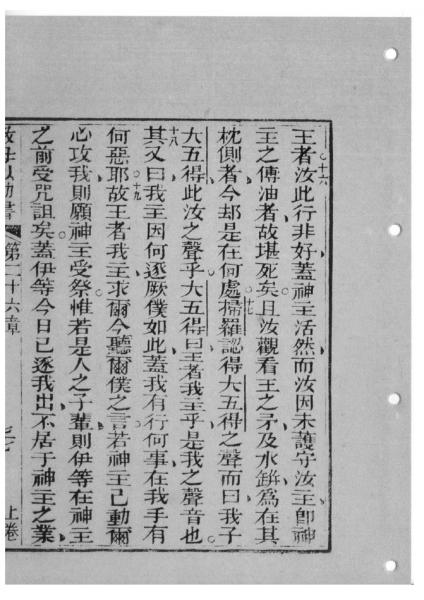 ○十六
王者汝此行非好蓋神主活然而汝因未護守汝主卽神
主之傅油者故堪死矣且汝觀看王之矛及水缾為在其
○十七
枕側者今却是在何處掃羅認得大五得之聲而曰我子
大五得此汝之聲乎大五得曰王者我主乎是我之聲音也
十八
其又曰我主因何逐厥僕如此蓋我有行何事在我手有
○十九
何惡耶故王者我主求爾今聽爾僕之言若神主已動爾
心攻我則願神主受祭惟若是人之子輩則伊等在神主
之前受咒詛矣蓋伊等今日已逐我出不居于神主之業
書 第二十六章 上卷